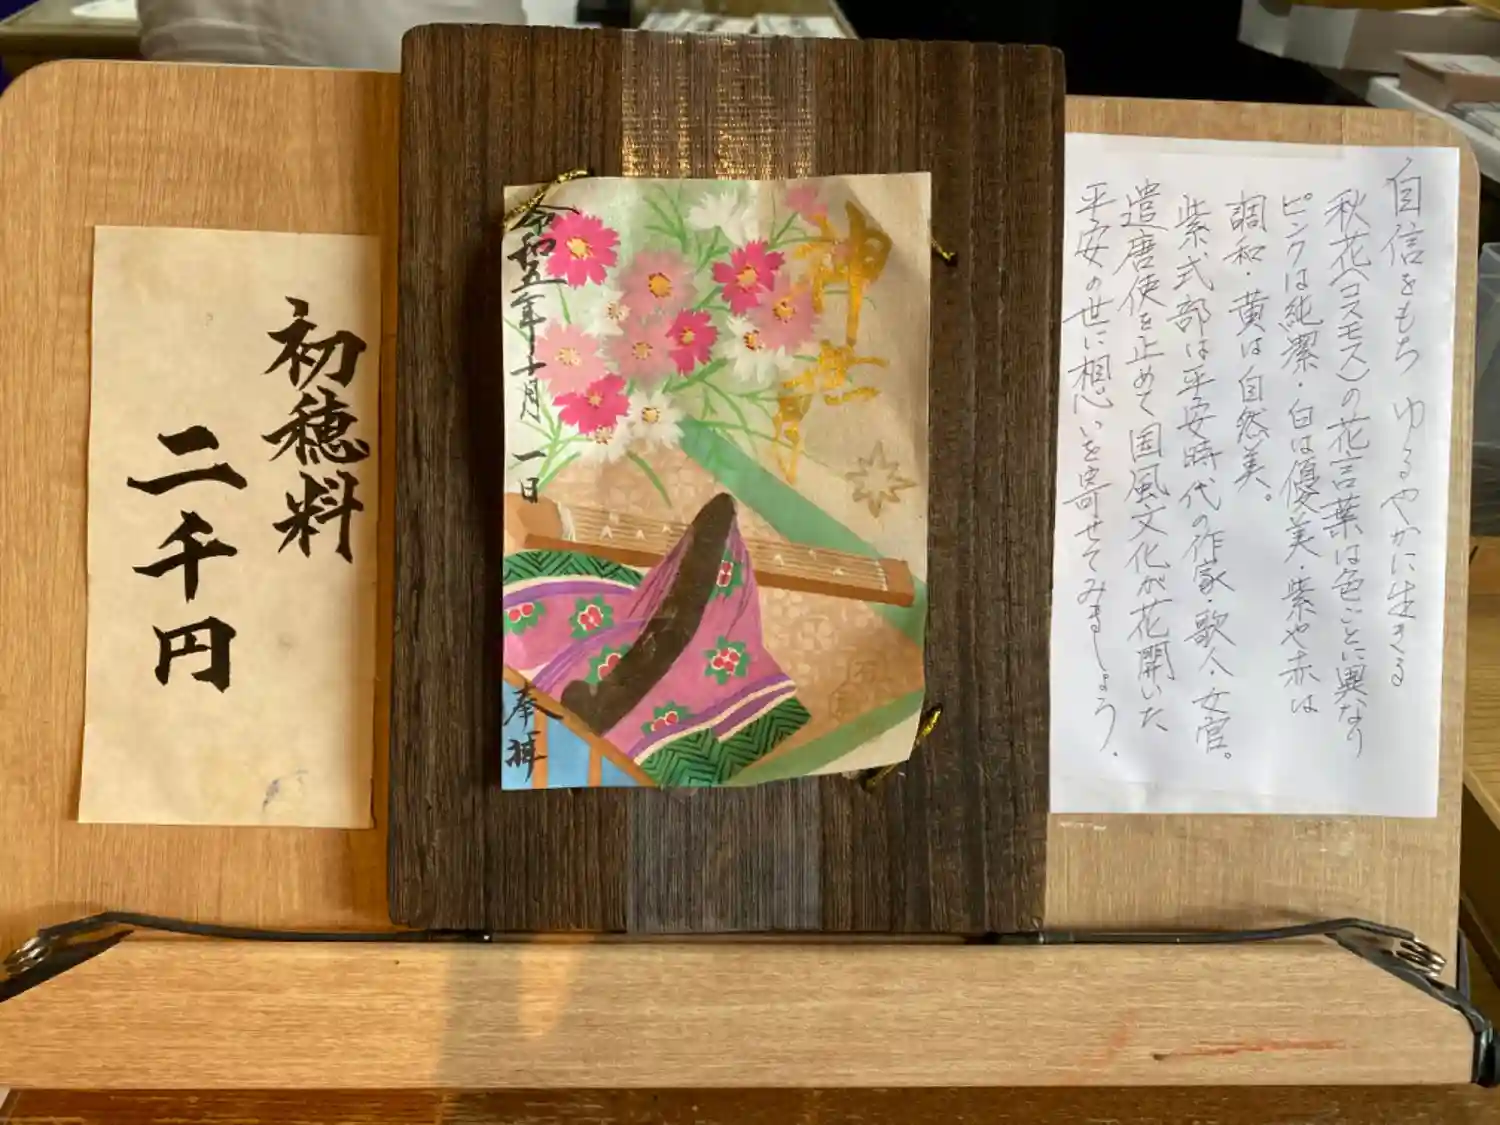 自信をもち ゆるやかに生きる
秋花(コスモス)の花言葉は色ごとに異なり
ピンクは純潔・白は優美・紫や赤は
調和・黄は自然美。
紫式部は平安時代の作家・歌人・女官。
遣唐使を止めて国風文化が花開いた
平安の世に想いを寄せてみましょう.
令和五年十月一日
奉拝
初穂料
二千円